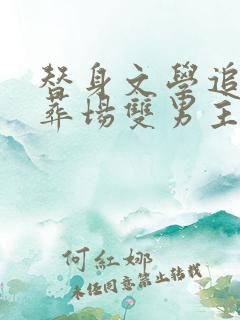 替身文學追
葬場雙男主
何紅娜
未經同意禁止轉載